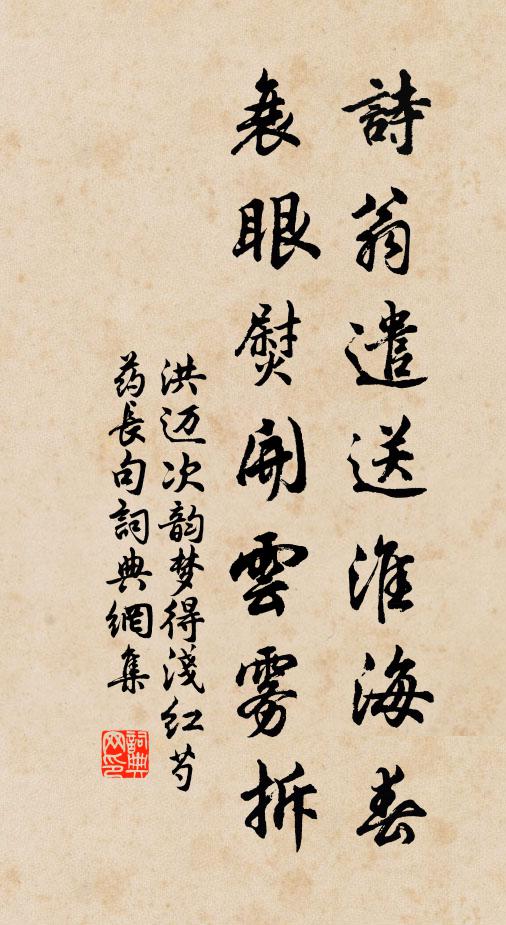 詩翁遣送淮海春
衰眼熨開雲霧拆
洪迈次韵梦得淺红芍
药長句詞典網集
詞典網印